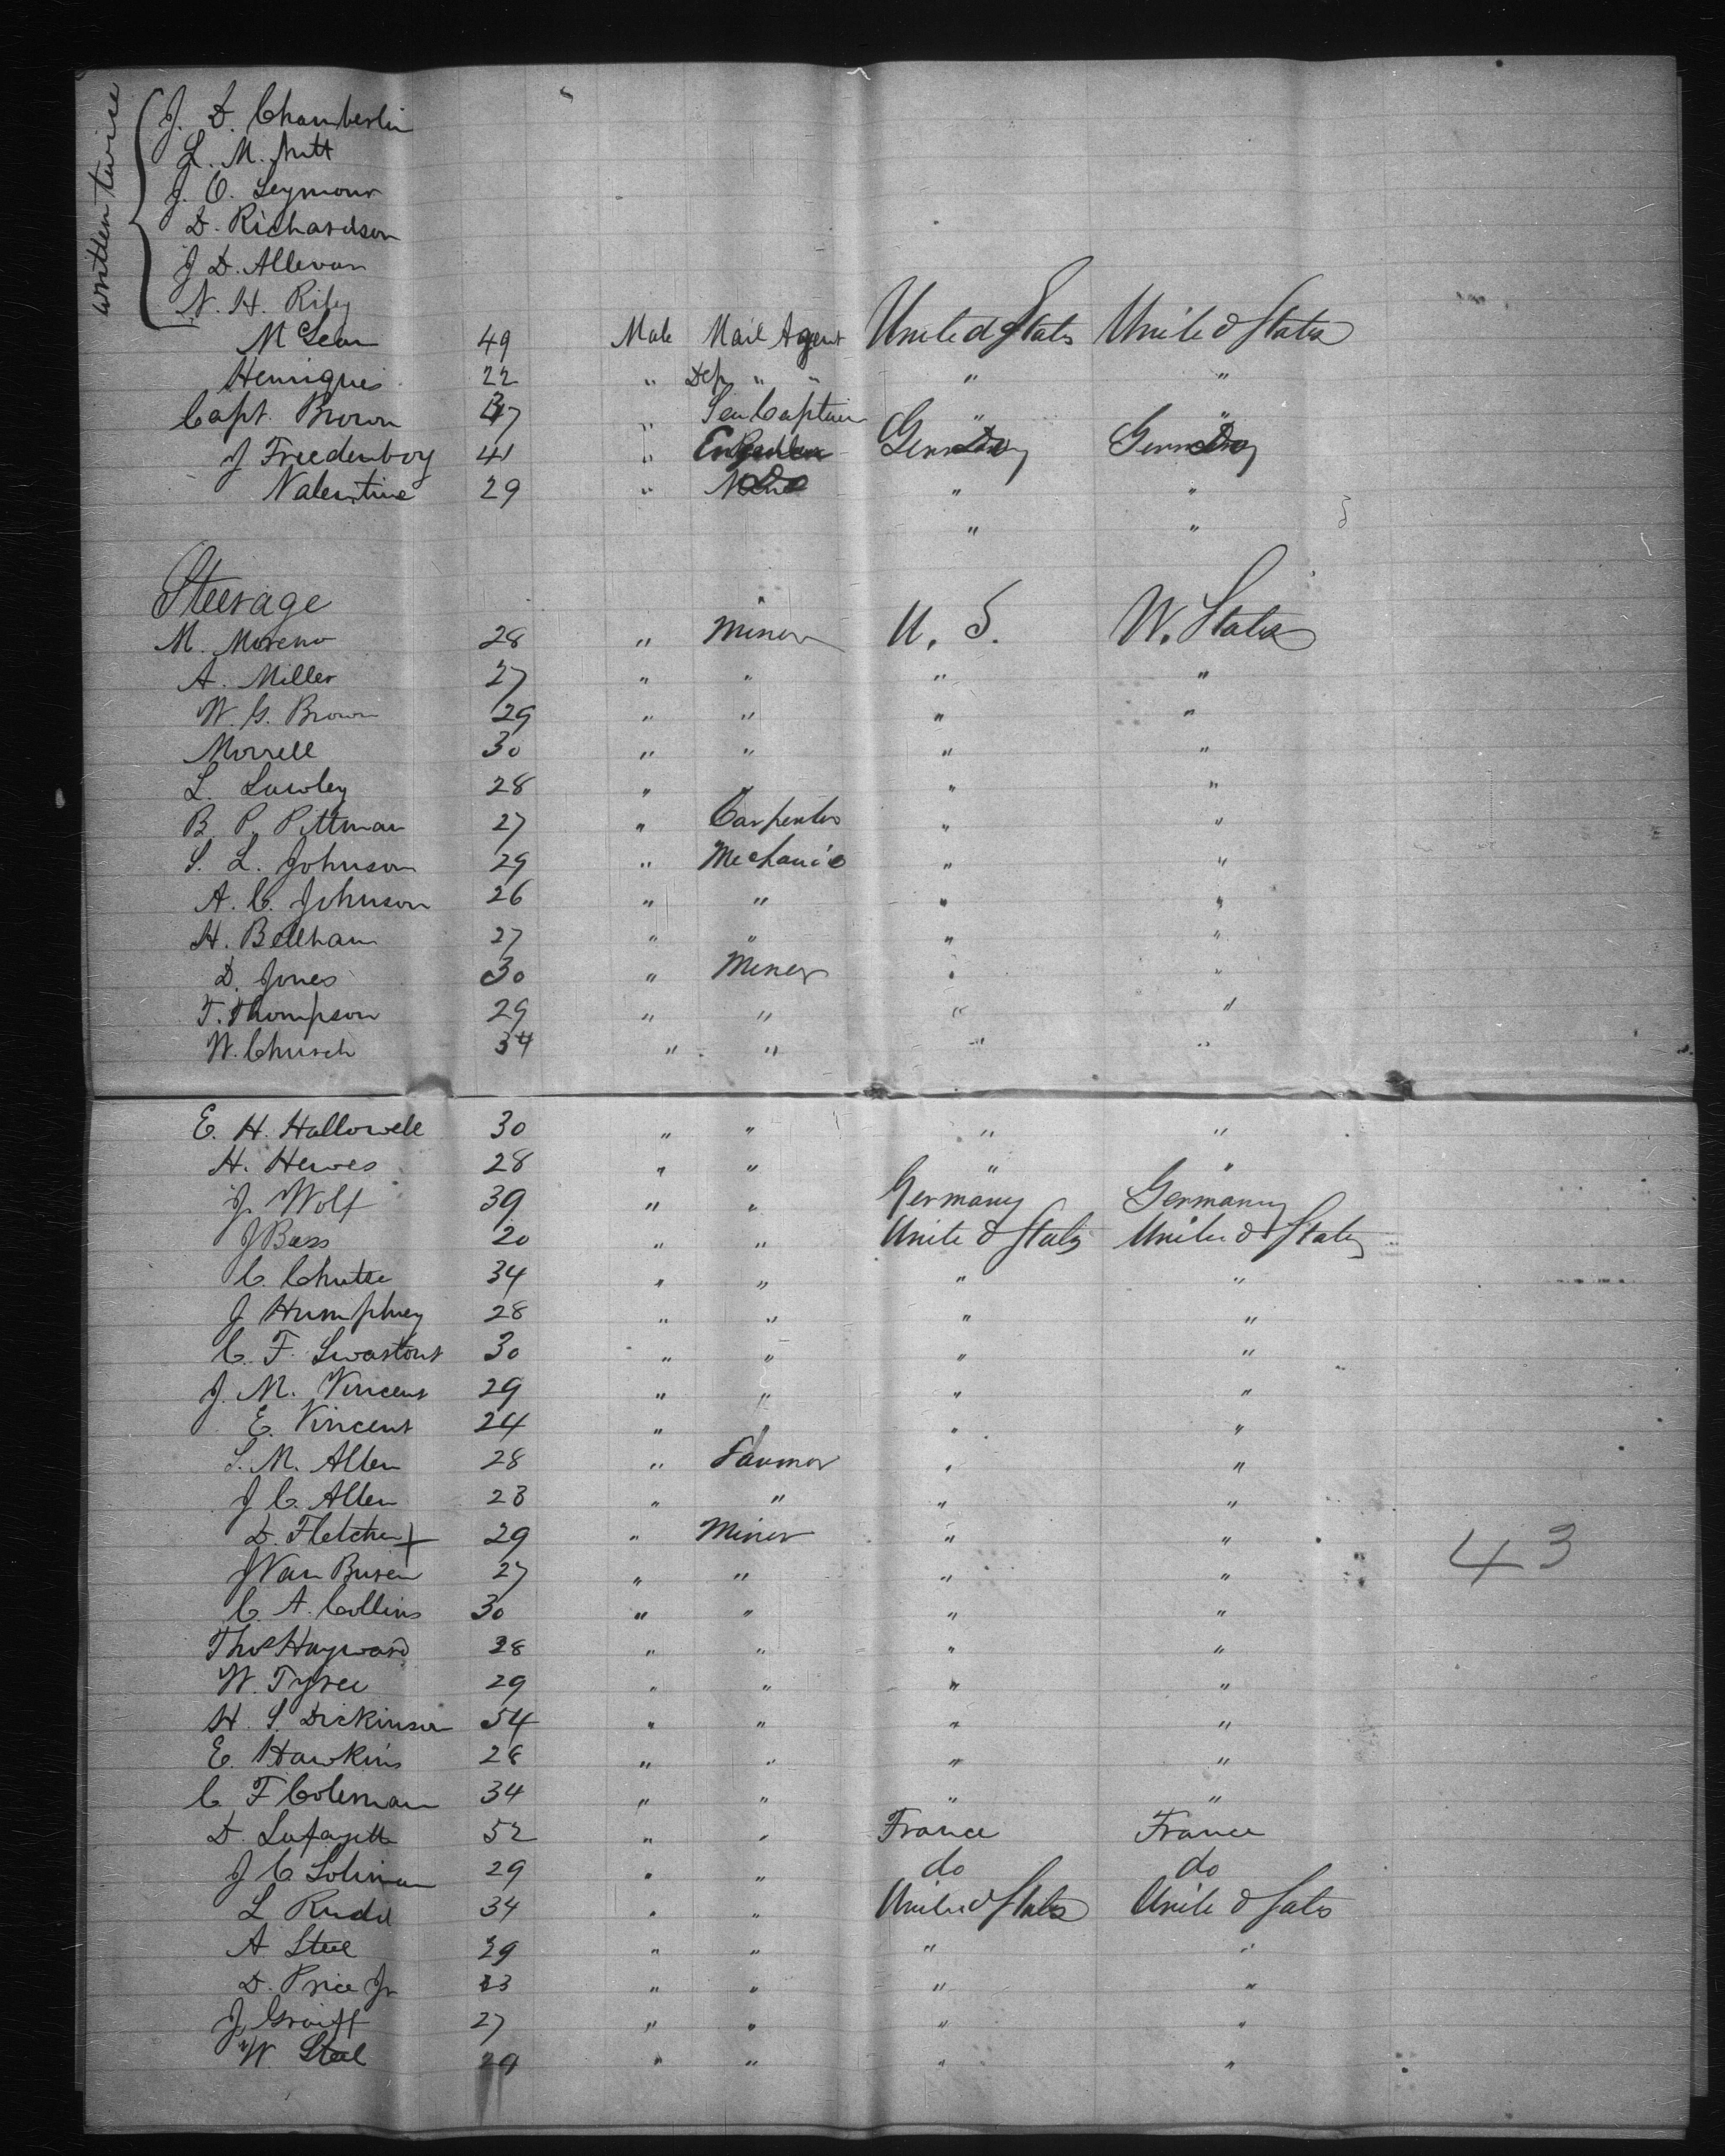 written twice
J. D. Chamberlin
L. M. Nutt
J. C. Seymour
D. Richardson
J D. Allevan
N. H. Rily
McLean 49 Male Mail Agent United States United States
Henriques 22 " Dep " " " "
Capt. Brown 47 " Sea Captain " "
J Freedenborg 41 " Do Do
Valentine 29 " Do " "
" "
Steerage
M. Moreno 28 " Miner U. S. U. States
A. Miller 27 " " " "
W. G. Brown 29 " " " "
Morrell 30 " " " "
L. Lawley 28 " " " "
B. P. Pittman 27 " Carpenter " "
S. L. Johnson 29 " Mechanic " "
A. C. Johnson 26 " " " "
H. Bellham 27 " " " "
D. Jones 30 " Miner " "
T. Thompson 29 " " " "
W. Church 34 " " " "
E. H. Hallowell 30 " " " "
H. Hewes 28 " " " "
J. Wolf 39 " " Germany Germany
J Bass 20 " " United States United States
C. Chutte 34 " " " "
J Humphrey 28 " " " "
C. F. Swartout 30 " " " "
J. M. Vincent 29 " " " "
E. Vincent 24 " " " "
S. M. Allen 28 " Farmer " "
J C. Allen 23 " " " "
D. Fletcher 29 " Miner " "
J Van Buren 27 " " " "
C. A. Collins 30 " " " "
Thos Hayward 28 " " " "
W. Tyree 29 " " " "
H. S. Dickinson 54 " " " "
E. Hawkins 28 " " " "
C. F Coleman 34 " " " "
D. Lafayette 52 " " France France
J C Soliman 29 " " do do
L Rudd 34 " " United States United States
A Steel 29 " " " "
D. Price Jr 23 " " " "
J. Graiff 27 " " " "
W. Steel 29 " " " "
43